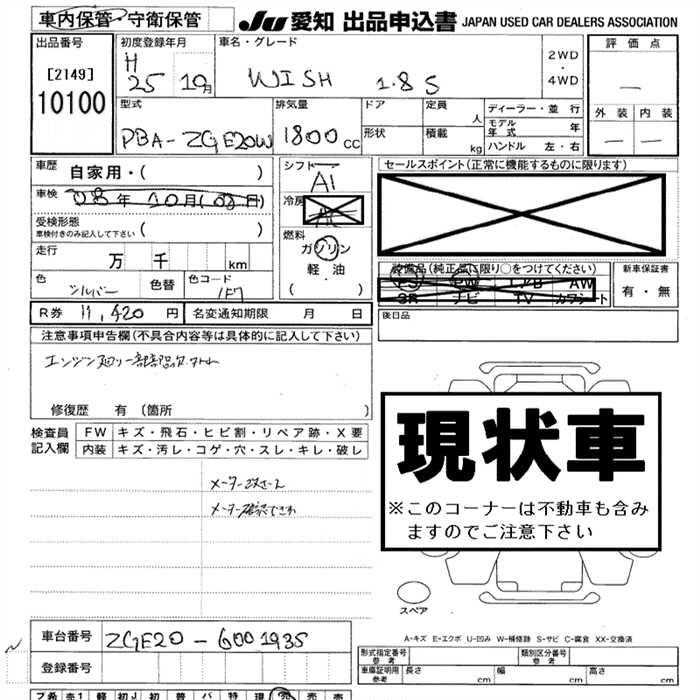 車内保管・守衛保管 JU 愛知 出品申込書 JAPAN USED CAR DEALERS ASSOCIATION
出品番号 初度登録年月 車名・グレード 評価点
[2149] H 25 10月 WISH 1.8 S 2WD・4WD —
10100
型式 排気量 ドア 定員 人 ディーラー・並行 外装 内装
PBA-ZGE20W 1800 CC 形状 積載 kg モデル年式 年 — —
ハンドル 左・右
車歴 自家用・( ) シフト AI セールスポイント(正常に機能するものに限ります)
車検 年 10月( 日) 冷房
受検形態 車検付きのみ記入して下さい ( ) 燃料
走行 万 千 km ガソリン 装備品(純正品に限り○をつけてください) 新車保証書
色 シルバー 色替 色コード 1F7 軽油 ( ) PS PW AW 有・無
SR ナビ TV カワシート
R券 11,420 円 名変通知期限 月 日 後日品
注意事項申告欄(不具合内容等は具体的に記入して下さい)
エンジン廻り一部部品欠
修復歴 有 (箇所 )
検査員記入欄 FW キズ・飛石・ヒビ割・リペア跡・X要
内装 キズ・汚レ・コゲ・穴・スレ・キレ・破レ
メーター改ざん
メーター確認できず
現状車
※このコーナーは不動車も含み
ますのでご注意下さい
スペア
A-キズ E-エクボ U-凹み W-補修跡 S-サビ C-腐食 XX-交換済
車台番号 ZGE20-6001935 形式指定番号 参考 類別区分番号 参考
登録番号 車庫証明用 参考 長さ cm 幅 cm 高さ cm